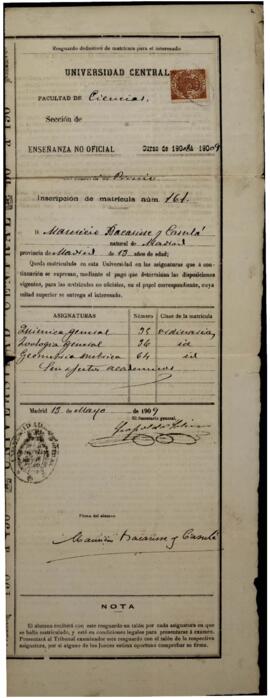 Resguardo deductoró de matrícula para el interesado
UNIVERSIDAD CENTRAL
FACULTAD DE Ciencias.
Sección de
ENSEÑANZA NO OFICIAL Curso de 1908 á 1909
Premio
Inscripción de matrícula núm. 161.
D. Mauricio Bacarisse y Casulá
natural de Madrid
provincia de Madrid de 13 años de edad;
Queda matriculado en esta Universidad en las asignaturas que á con-
tinuación se expresan, mediante el pago que determinan las disposiciones
vigentes, para las matrículas no oficiales, en el papel correspondiente, cuya
mitad superior se entrega al interesado.
ASIGNATURAS Número Clase de la matrícula
Química general 35 ordinaria
Zoología general 36 id
Geometría métrica 64 id
Sin efectos académicos
Madrid 13 de Mayo de 1909
El Secretario general,
Firma del alumno
Mauricio Bacarisse y Casulá
NOTA
El alumno recibirá con este resguardo un talón por cada asignatura en que
se halle matriculado, y esté en condiciones legales para presentarse á examen.
Presentará al Tribunal examinador este resguardo con el talón de la respectiva
asignatura, por si alguno de los Jueces estima oportuno comprobar su firma.